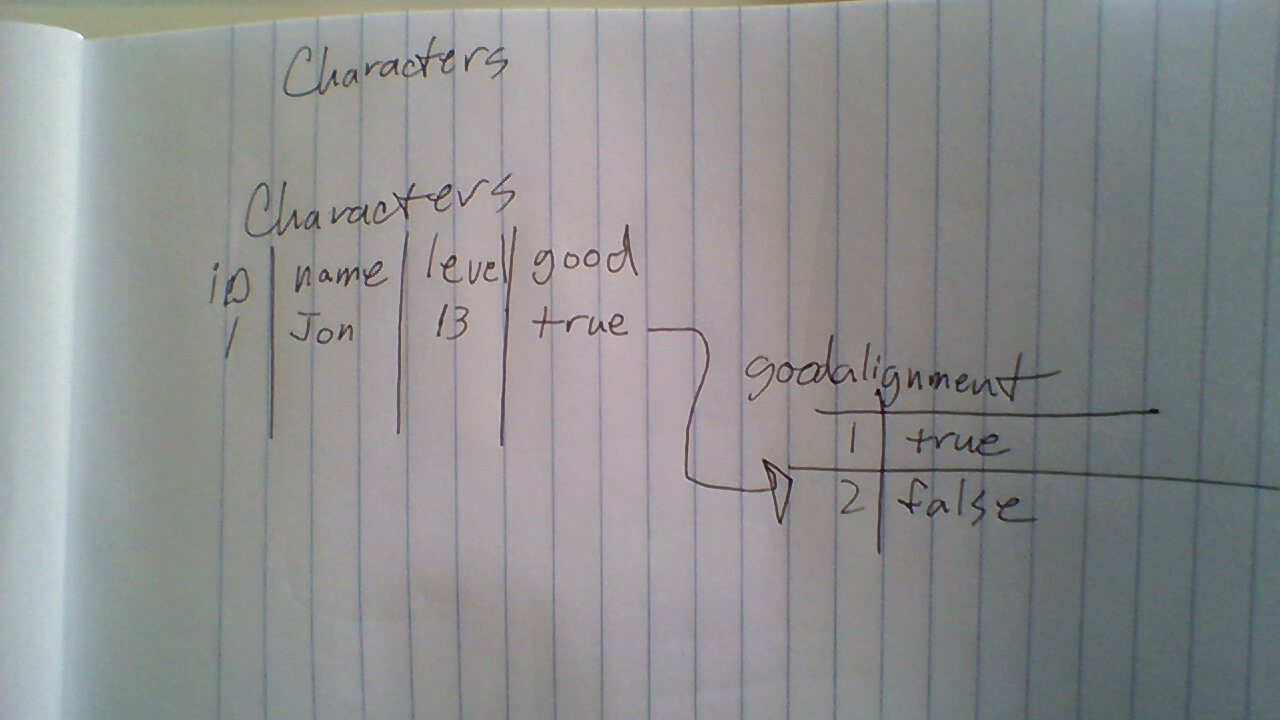 Characters
Characters
iD name level good
1 Jon 13 true
goodalignment
1 true
2 false